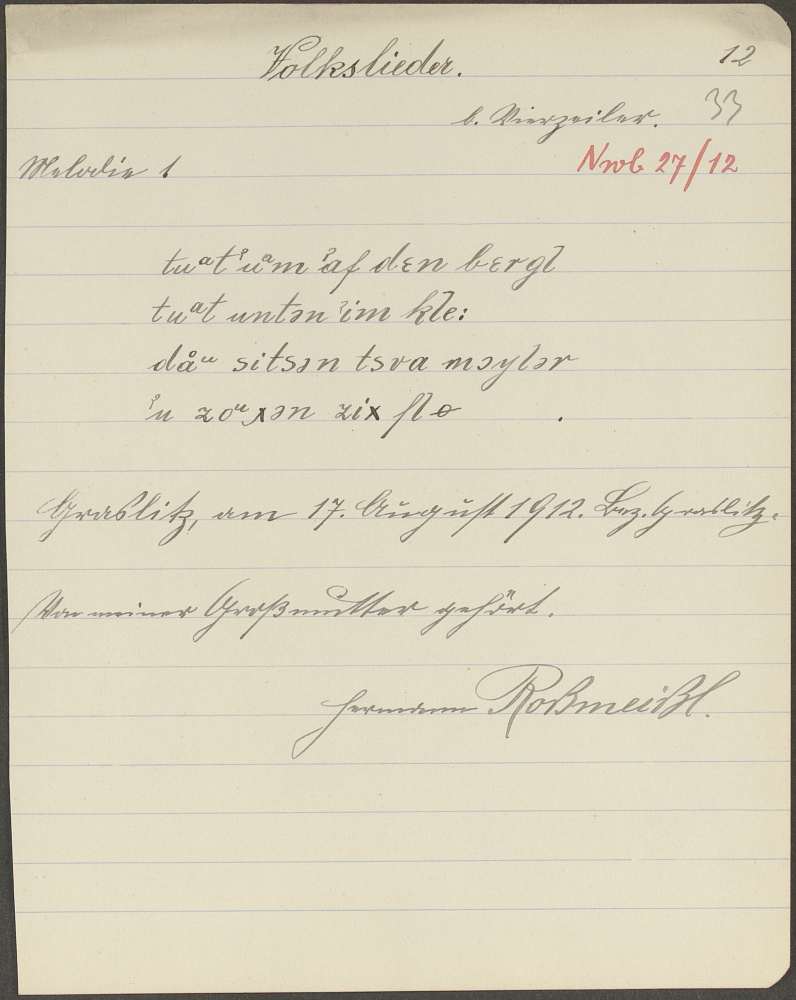 Volkslieder.
12
b. Vierzeiler.
33
Melodie 1
Nwb 27/12
tuᵃtˀuᵃm ˀaf dɛn bɛrgl
tuᵃt untən ˀim kle:
dåᵘ sitsən tsva məylər
ˀu zoᵘxən zix flø .
Graslitz, am 17. August 1912. Bez. Graslitz.
Von meiner Großmutter gehört.
Hermann Roßmeißl.